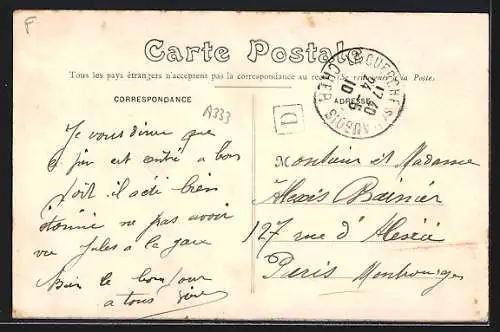 F
Carte Postale
Tous les pays étrangers n'acceptent pas la correspondance au recto. Se renseigner à la Poste
CORRESPONDANCE
ADRESSE
A333
D
LA GUERCHE S. L'AUBOIS
17 30
24 - 5
10
CHER
Je vous dirai que
est entré a bon
Port il a été bien
étonné ne pas avoir
vu Jules a la gare
Bien le bonjour
a tous
Monsieur et Madame
Alexis
127 rue d'Alésia
Paris Montrouge